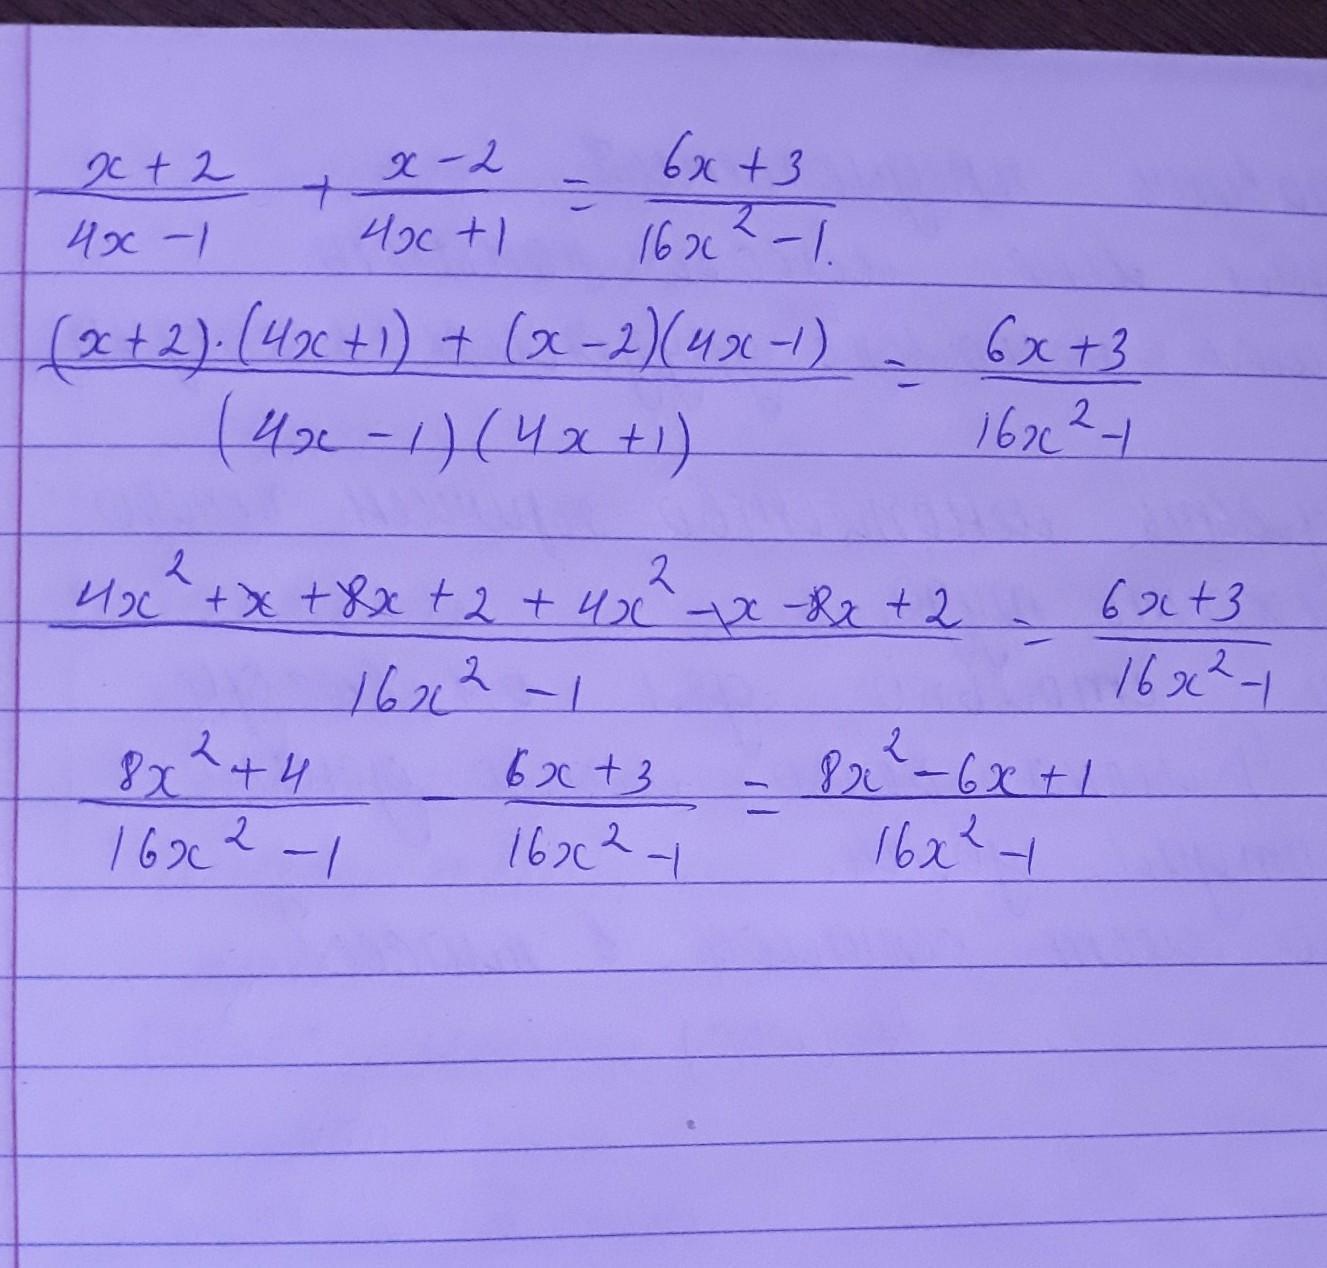 x+2/4x-1 + x-2/4x+1 = 6x+3/16x²-1.
(x+2)·(4x+1) + (x-2)(4x-1)/(4x-1)(4x+1) = 6x+3/16x²-1
4x²+x+8x+2+4x²-x-8x+2/16x²-1 = 6x+3/16x²-1
8x²+4/16x²-1 - 6x+3/16x²-1 = 8x²-6x+1/16x²-1